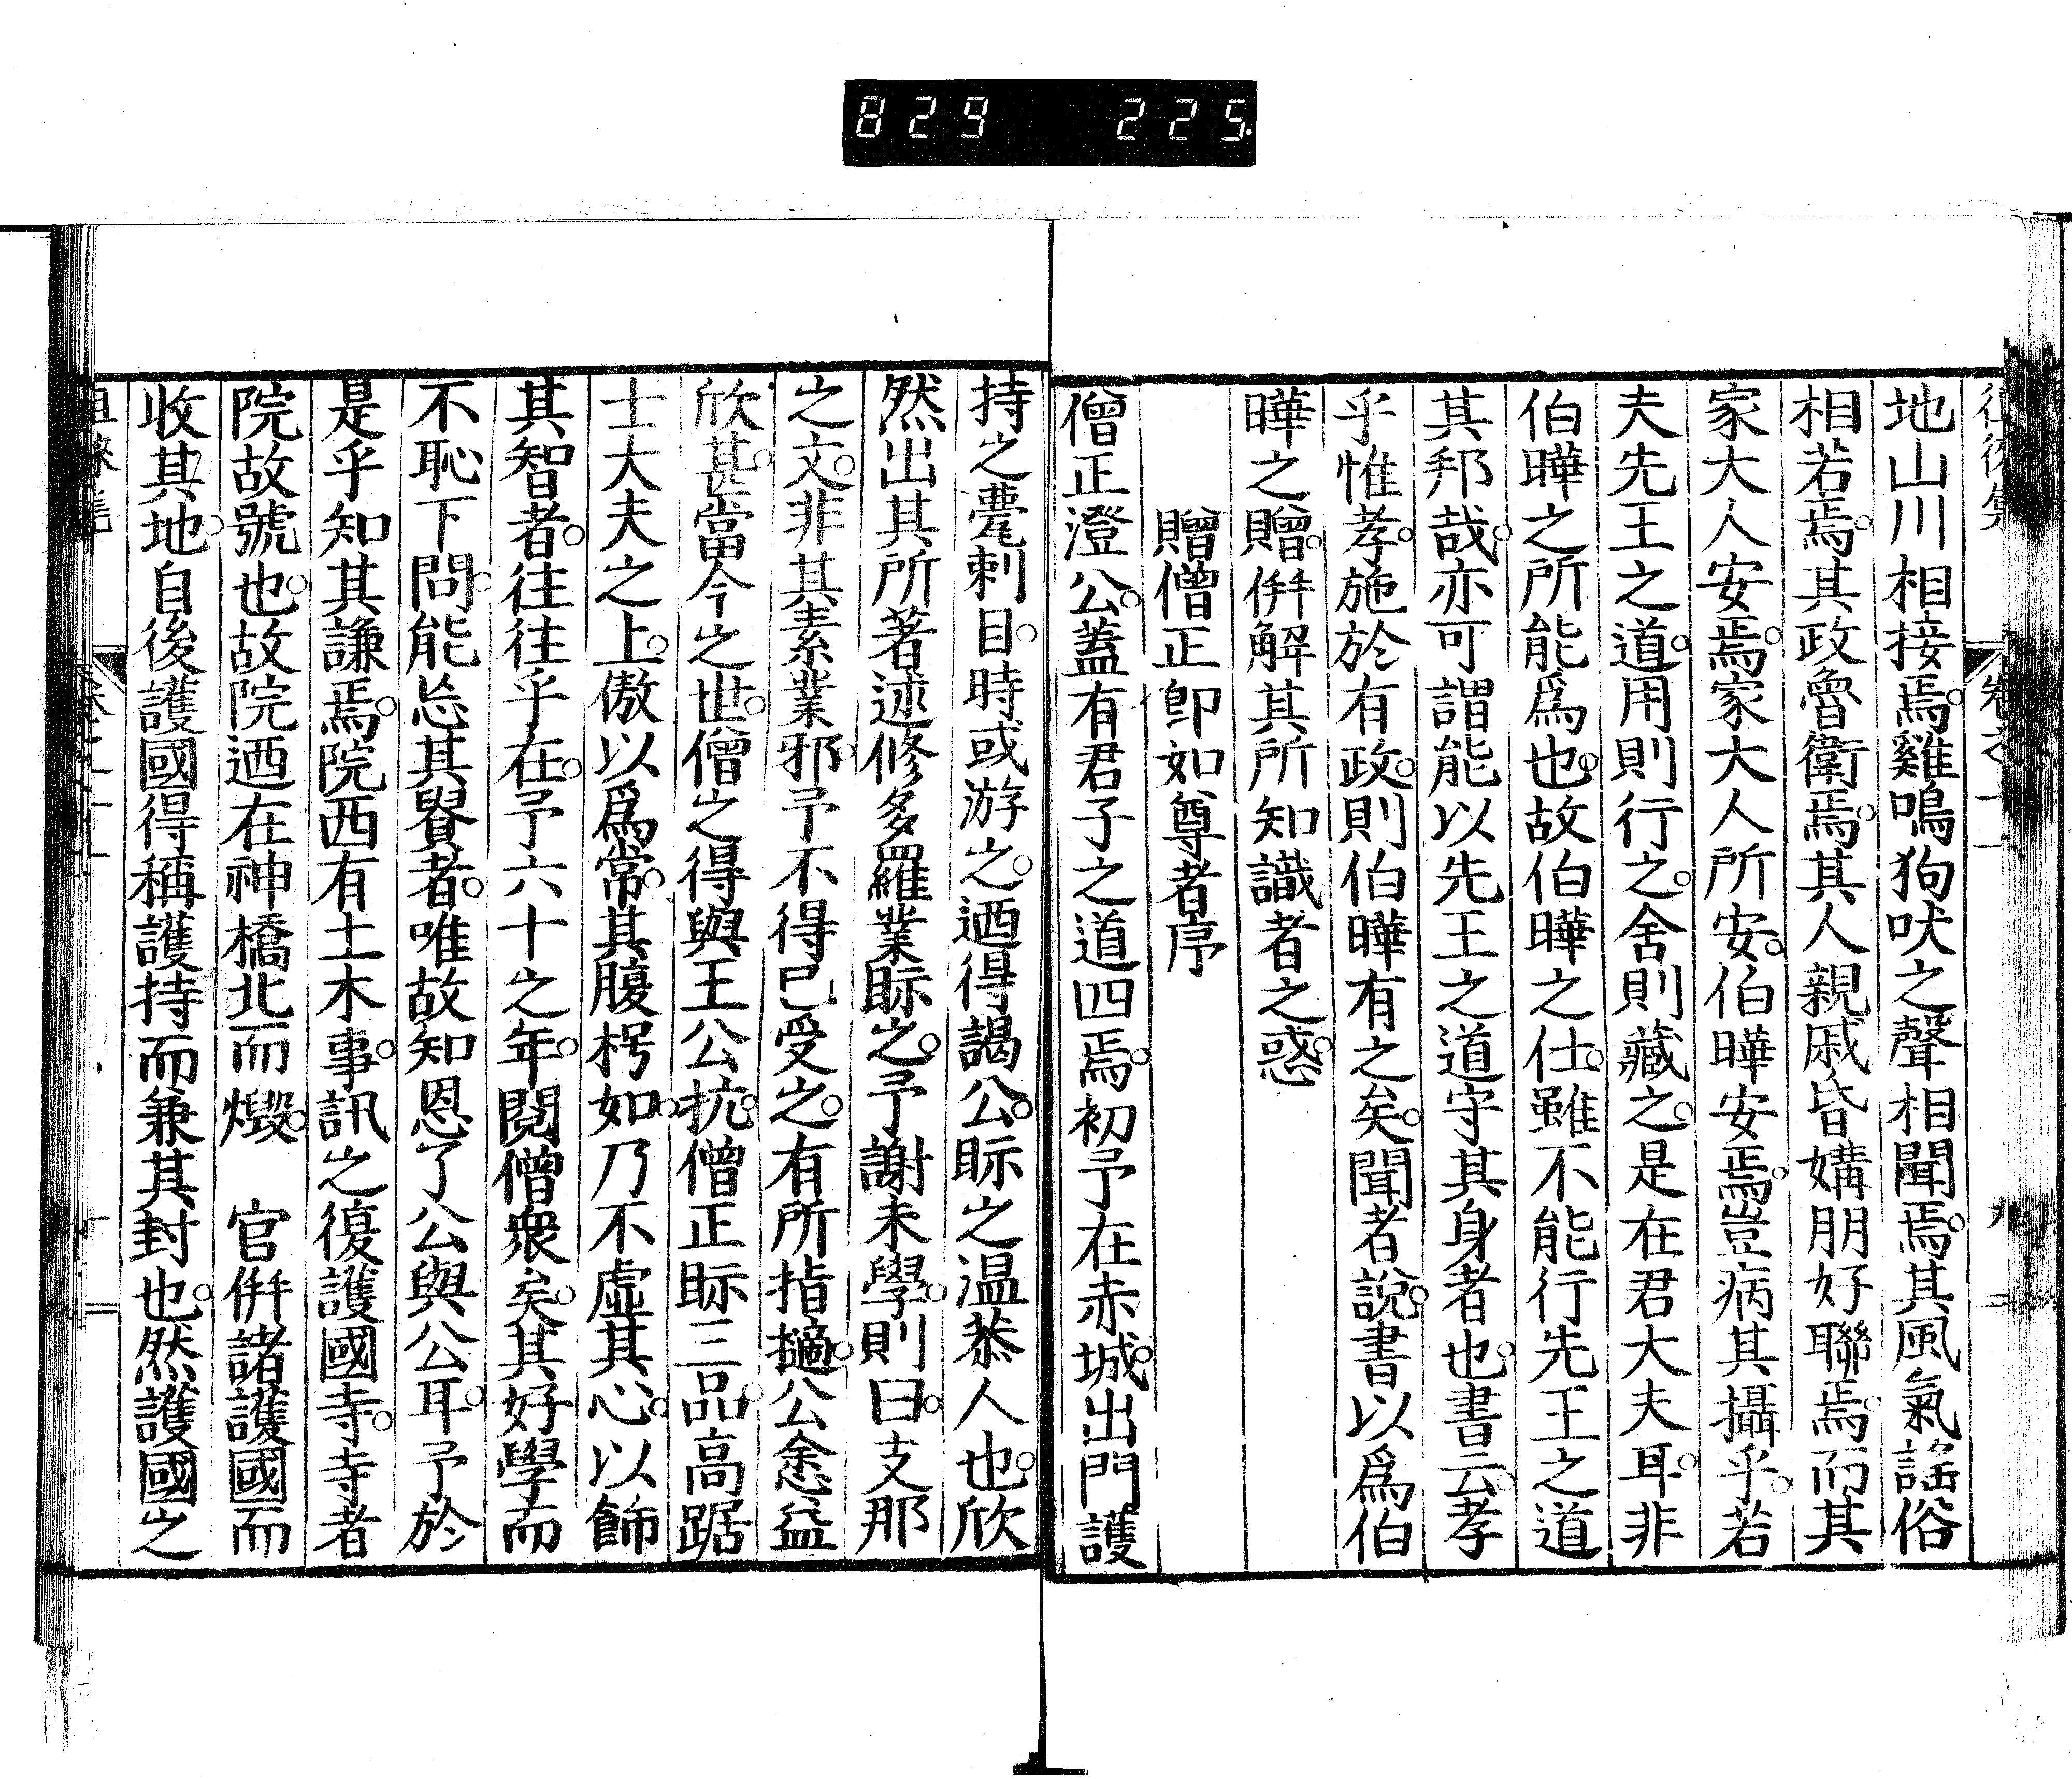 829 225.
地山川相接焉。雞鳴狗吠之聲相聞焉。其風氣謡俗
相若焉。其政魯衛焉。其人親戚昏媾朋好聯焉。而其
家大人安焉。家大人所安。伯曄安焉。豈病其攝乎。若
夫先王之道。用則行之。舍則藏之。是在君大夫耳。非
伯曄之所能爲也。故伯曄之仕。雖不能行先王之道
其邦哉。亦可謂能以先王之道守其身者也。書云。孝
乎惟孝。施於有政。則伯曄有之矣。聞者說。書以爲伯
曄之贈。併解其所知識者之惑。
贈僧正卽如尊者序
僧正澄公。蓋有君子之道四焉。初予在赤城。出門護
持之甍刺目。時或游之。迺得謁公。眎之温恭人也。欣
然出其所著述修多羅業眎之。予謝未學。則曰。支那
之文。非其素業邪。予不得已受之。有所指擿。公悆益
欣甚。當今之世。僧之得與王公抗。僧正眎三品。高踞
士大夫之上。傲以爲常。其腹枵如。乃不虛其心。以飾
其智者。往往乎在。予六十之年。閱僧衆矣。其好學而
不恥下問。能忘其賢者。唯故知恩了公與公耳。予於
是乎知其謙焉。院西有土木事。訊之復護國寺。寺者
院故號也。故院迺在神橋北而燬。 官併諸護國而
收其地。自後護國得稱護持而兼其封也。然護國之